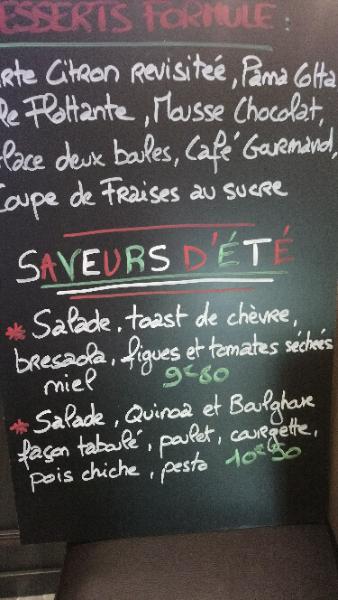 DESSERTS FORMULE :
Tarte Citron revisiteé, Pana Cotta
Ile Flottante, Mousse Chocolat,
Glace deux boules, Café Gourmand,
Coupe de Fraises au sucre
SAVEURS D'ÉTÉ
* Salade, toast de chèvre,
bresaola, figues et tomates séchées
miel 9€80
* Salade, Quinoa et Boulghour
façon taboulé, poulet, courgette,
pois chiche, pesto 10€50